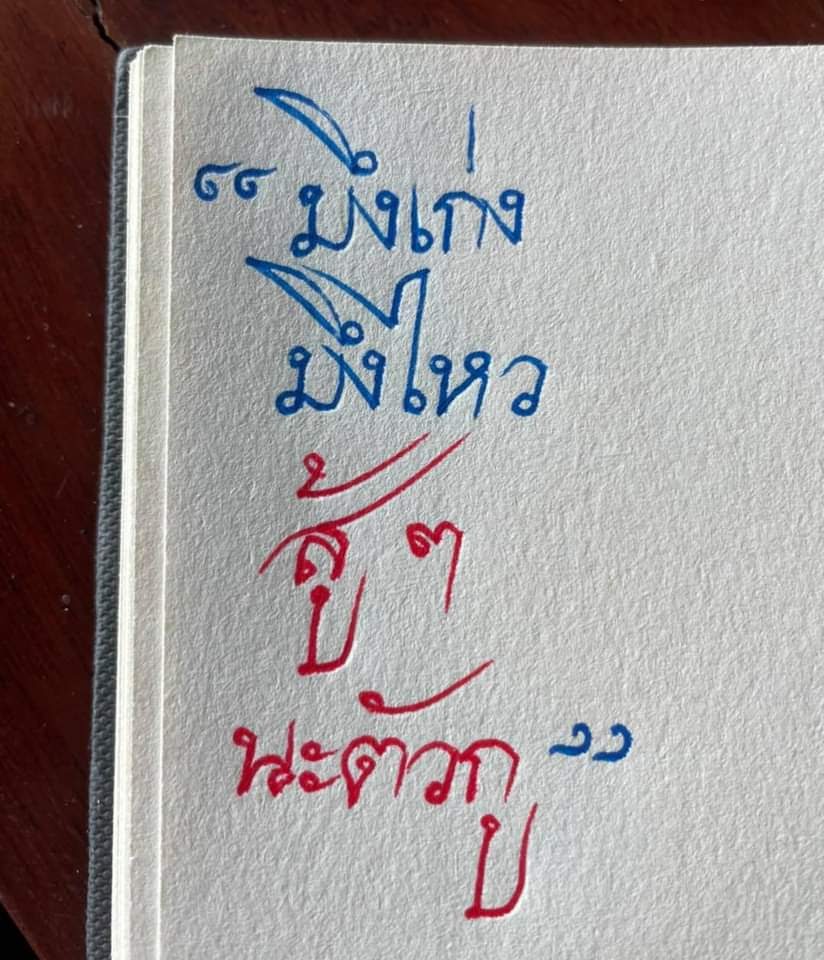 “ มึงเก่ง
มึงไหว
สู้ ๆ
นะตัวกู ”